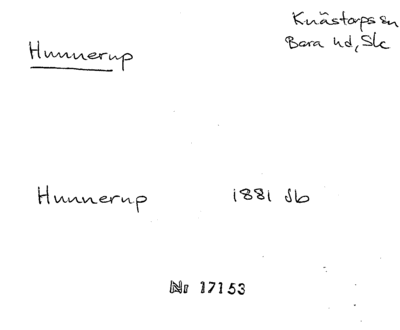 Knästorps sn
Hunnerup
Bara hd, Sk
Hunnerup 1881 Jb
Nr 17153